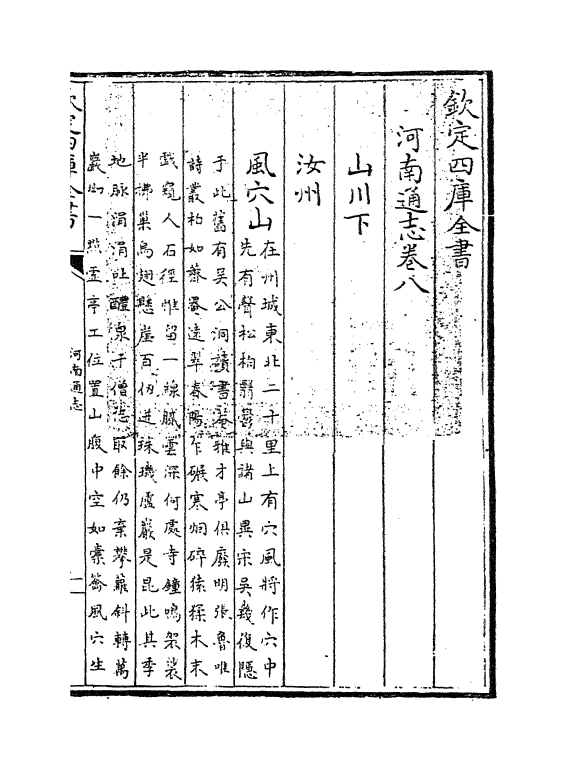 欽定四庫全書
河南通志卷八
山川下
汝州
風穴山在州城東北二十里上有穴風將作穴中
先有聲松柏翳鬱與諸山異宋吳幾復隱
于此舊有吳公洞讀書菴雅才亭俱廢明張魯唯
詩叢柏如薺器遠翠春陽作碾寒烟碎猿猱木末
戲窺人石徑惟留一線膝雲深何處寺鐘鳴袈裟
半拂巢鳥翅懸崖百仞迸珠璣虛巖是昆此其季
地脉涓涓吐醴泉千僧取餘仍棄攀蘿斜轉萬
巖幽一點孟亭工位置山腹中空如橐籥風穴生
河南通志
一